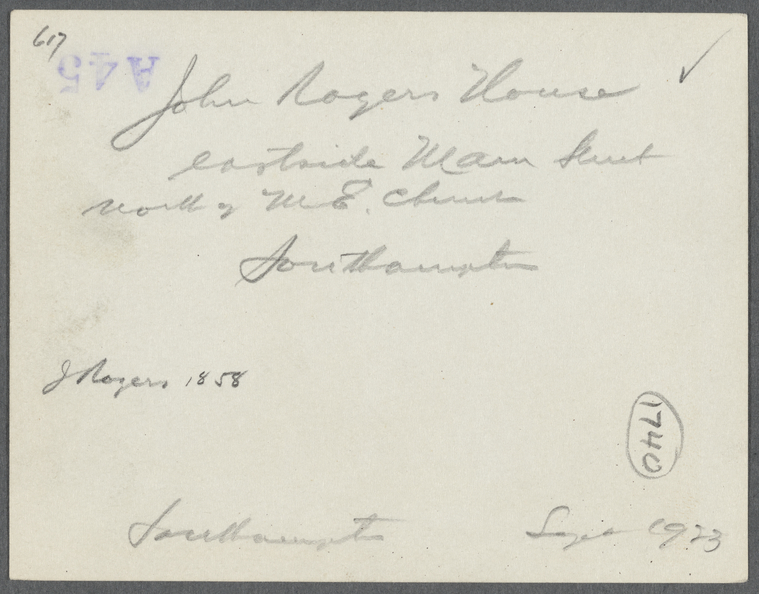 617
A45
John Rogers House
eastside Main Street
north of M.E. Church
Southampton
J Rogers 1858
1740
Southampton Sept 1923